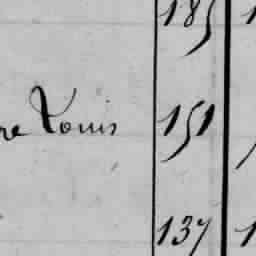 185
Louis 151
137